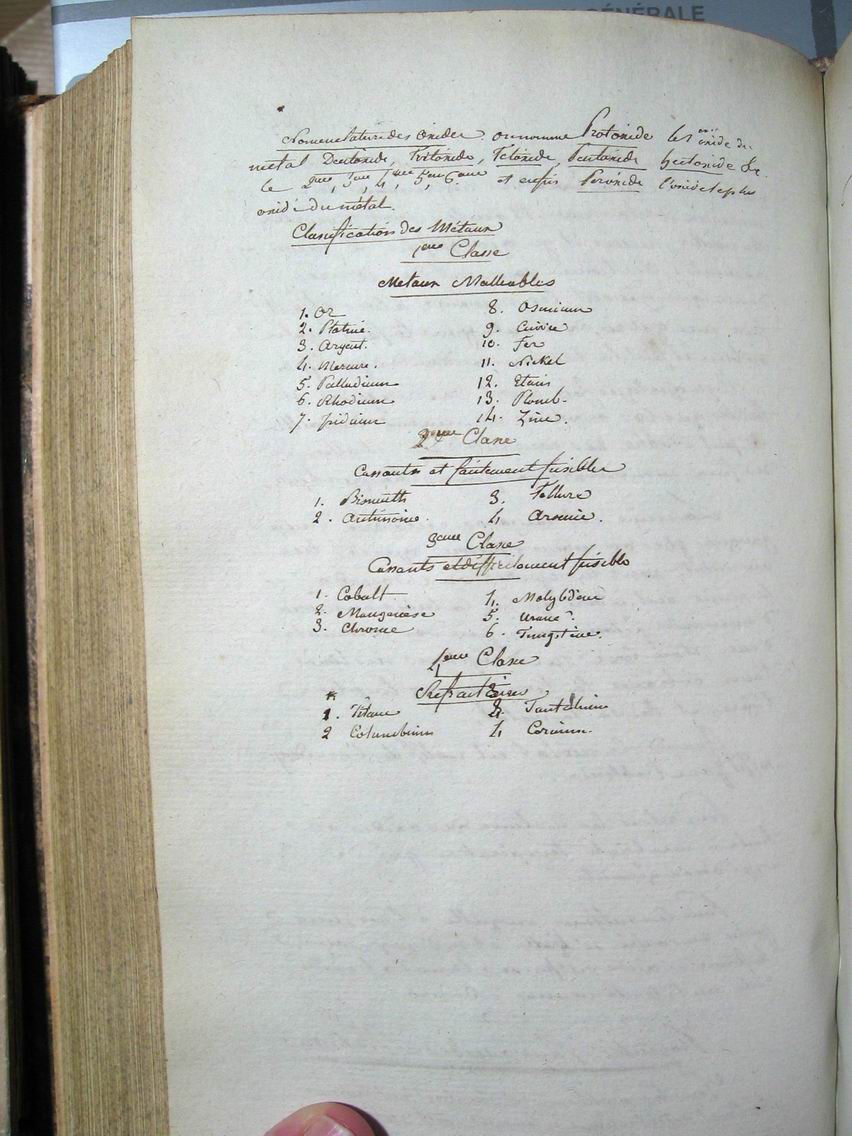 GÉNÉRALE
Nomenclature des oxides. on nomme Protoxide le 1er oxide du
métal Deutoxide, Tritoxide, Tetoxide, Pentoxide &c.
le 2eme, 3eme, 4eme, 5, 6eme et enfin Peroxide l'oxide le plus
oxidé du métal.
Classification des Métaux
1ere Classe
Metaux Malleables
1. Or 8. Osmium
2. Platine. 9. Cuivre
3. Argent. 10. Fer
4. Mercure. 11. Nickel
5. Palladium 12. Etain
6. Rhodium 13. Plomb
7. Iridium 14. Zinc.
2eme Classe
Cassants et facilement fusibles
1. Bismuth 3. Tellure
2. Antimoine. 4. Arsenic.
3eme Classe
Cassants et difficilement fusible
1. Cobalt 4. Molybdène
2. Manganèse 5. Urane
3. Chrome 6. Tungstène.
4eme Classe
Refractaires
1. Titane 3. Tantalium
2 Columbium 4. Cerium.